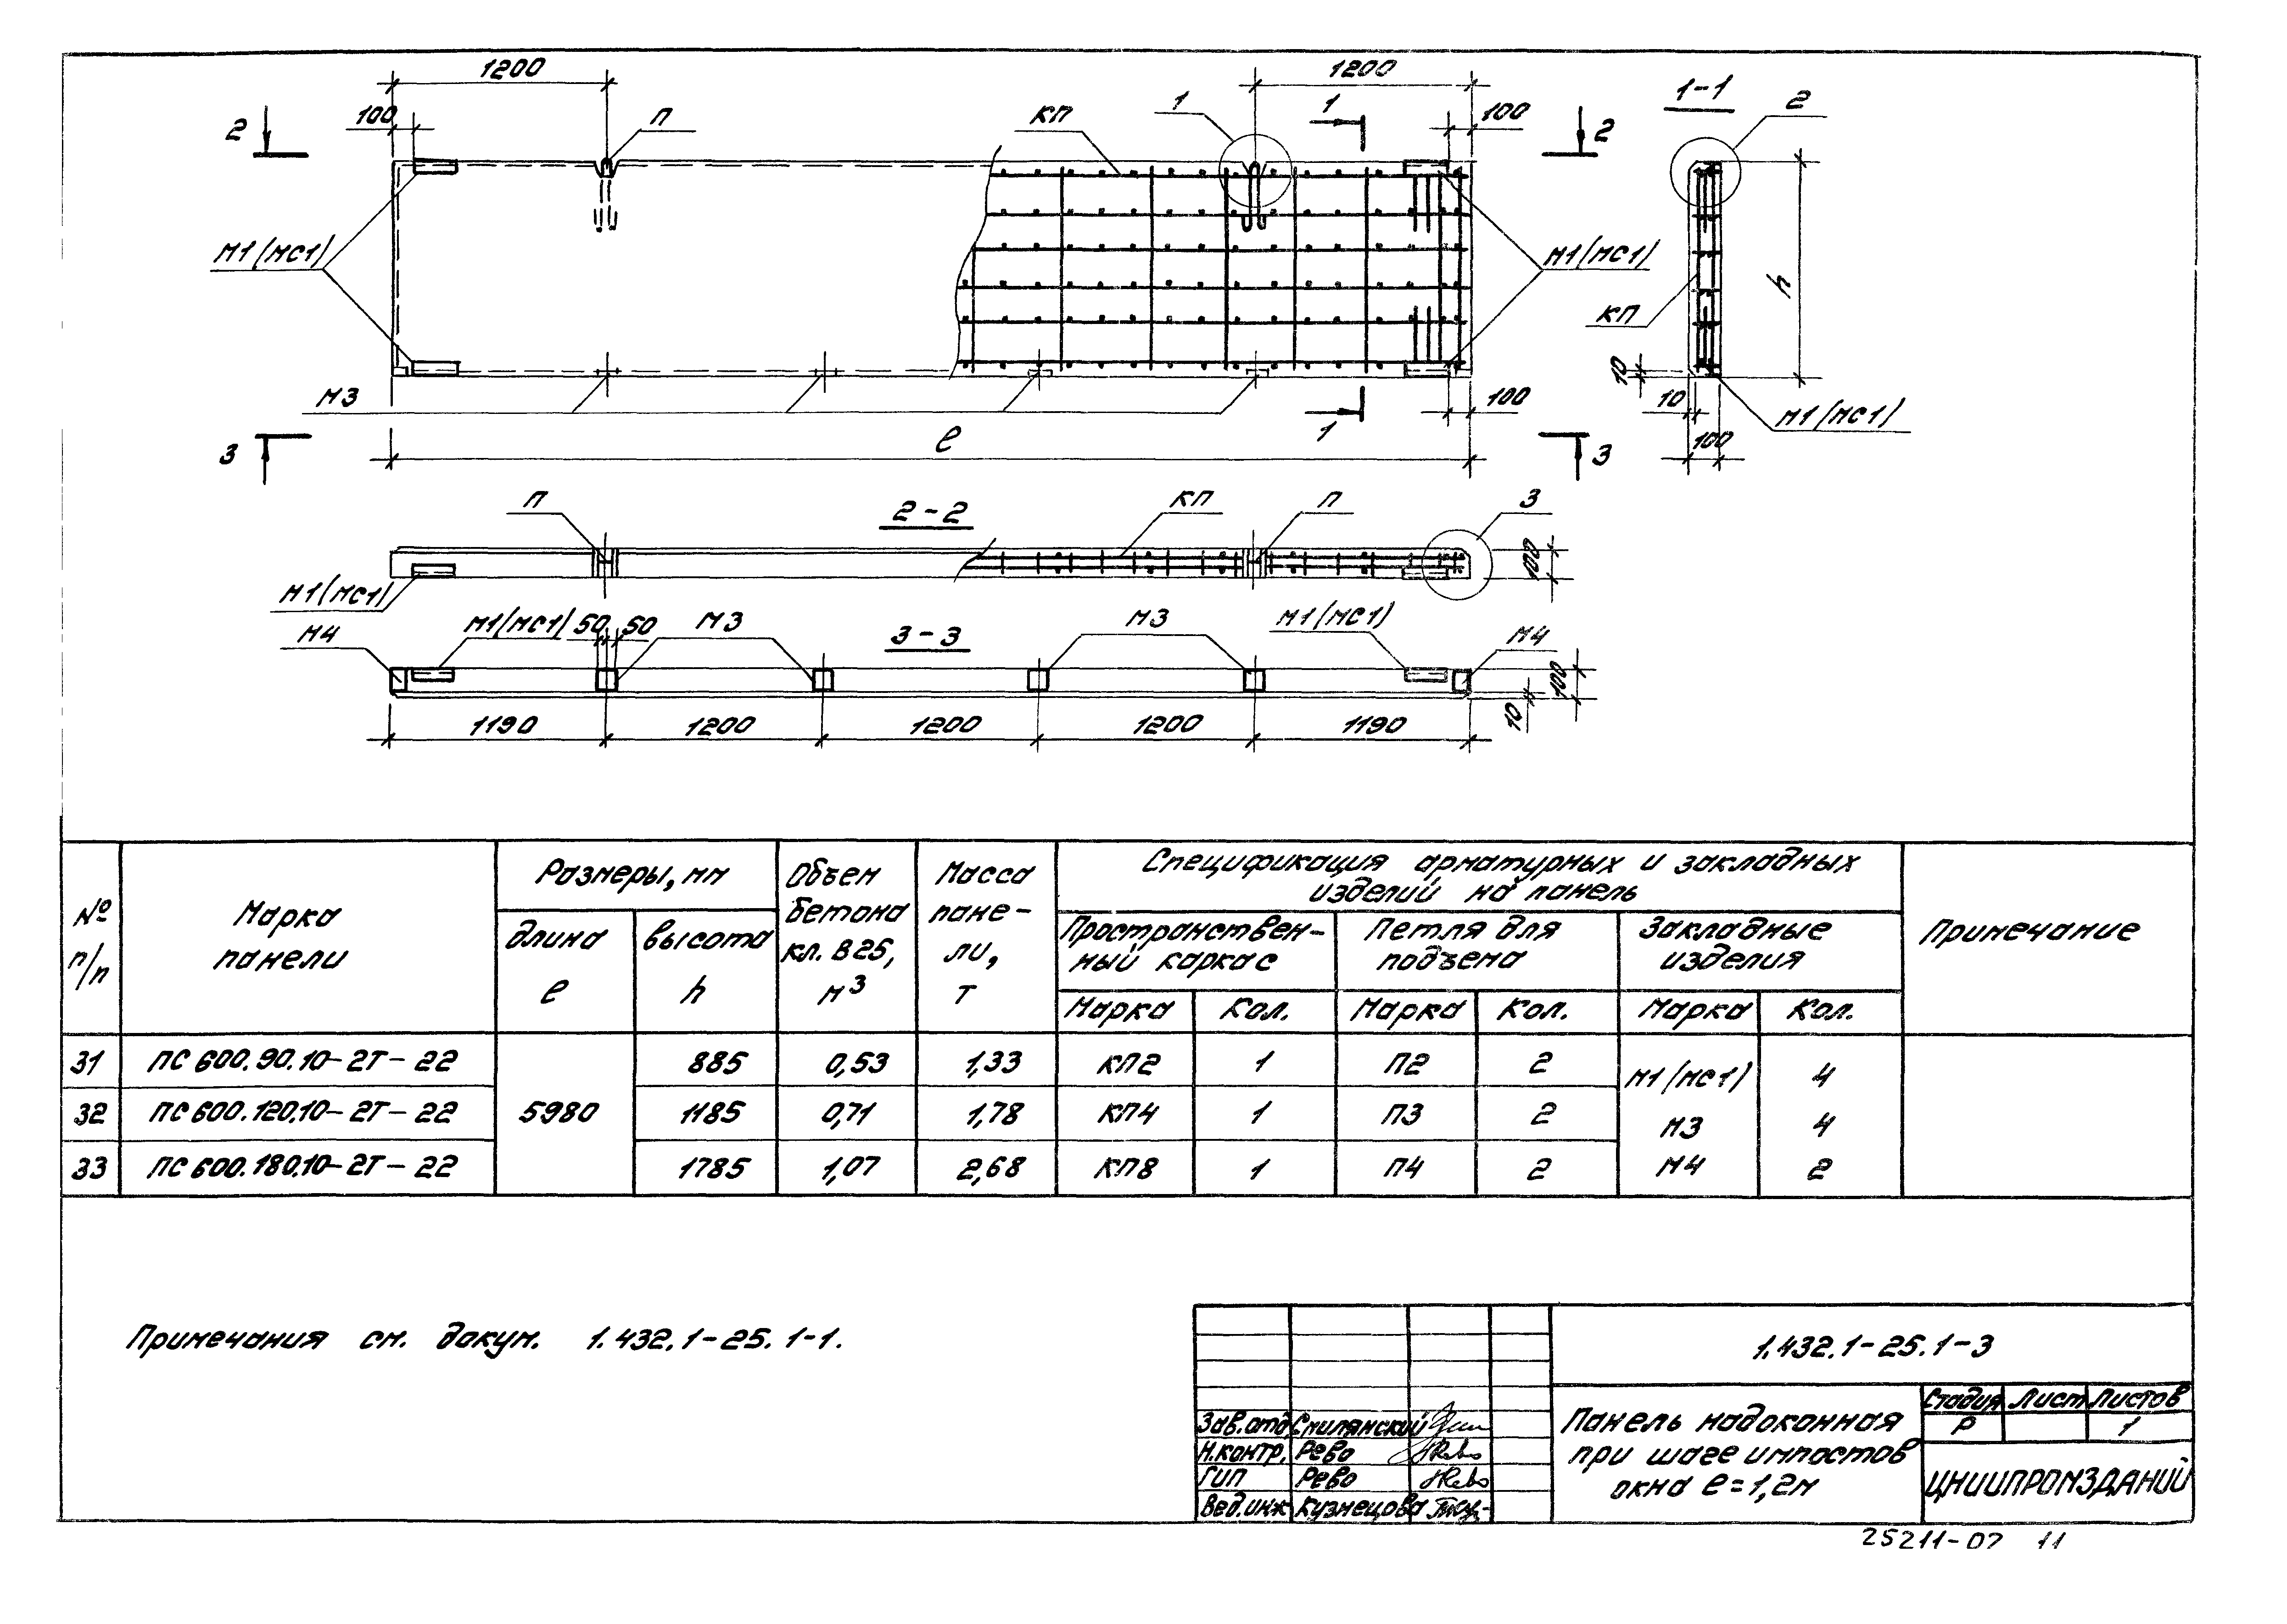 1200
1200
1-1
100
П
КП
1
1
100
2
2
2
М1(МС1)
М1(МС1)
h
КП
10
М3
100
10
М1(МС1)
3
ℓ
1
3
100
П
2-2
КП
П
3
М1(МС1)
100
М4
М1(МС1)
50
50
М3
3-3
М3
М1(МС1)
М4
100
10
1190
1200
1200
1200
1190
№ п/п
Марка панели
Размеры, мм
длина ℓ
высота h
Объем бетона кл. В25, м³
Масса панели, т
Спецификация арматурных и закладных
изделий на панель
Пространствен-
ный каркас
Петля для
подъема
Закладные
изделия
Примечание
Марка Кол. Марка Кол. Марка Кол.
31 ПС 600.90.10-2Т-22 885 0,53 1,33 КП2 1 П2 2 М1(МС1) 4
32 ПС 600.120.10-2Т-22 5980 1185 0,71 1,78 КП4 1 П3 2 М3 4
33 ПС 600.180.10-2Т-22 1785 1,07 2,68 КП8 1 П4 2 М4 2
Примечания см. докум. 1.432.1-25.1-1.
1.432.1-25.1-3
Зав.отд. Смилянский
Н.контр. Рево
ГИП Рево
Вед.инж Кузнецова
Панель надоконная
при шаге импостов
окна ℓ=1,2м
Стадия Лист Листов
Р 1
ЦНИИПРОМЗДАНИЙ
25211-02 11